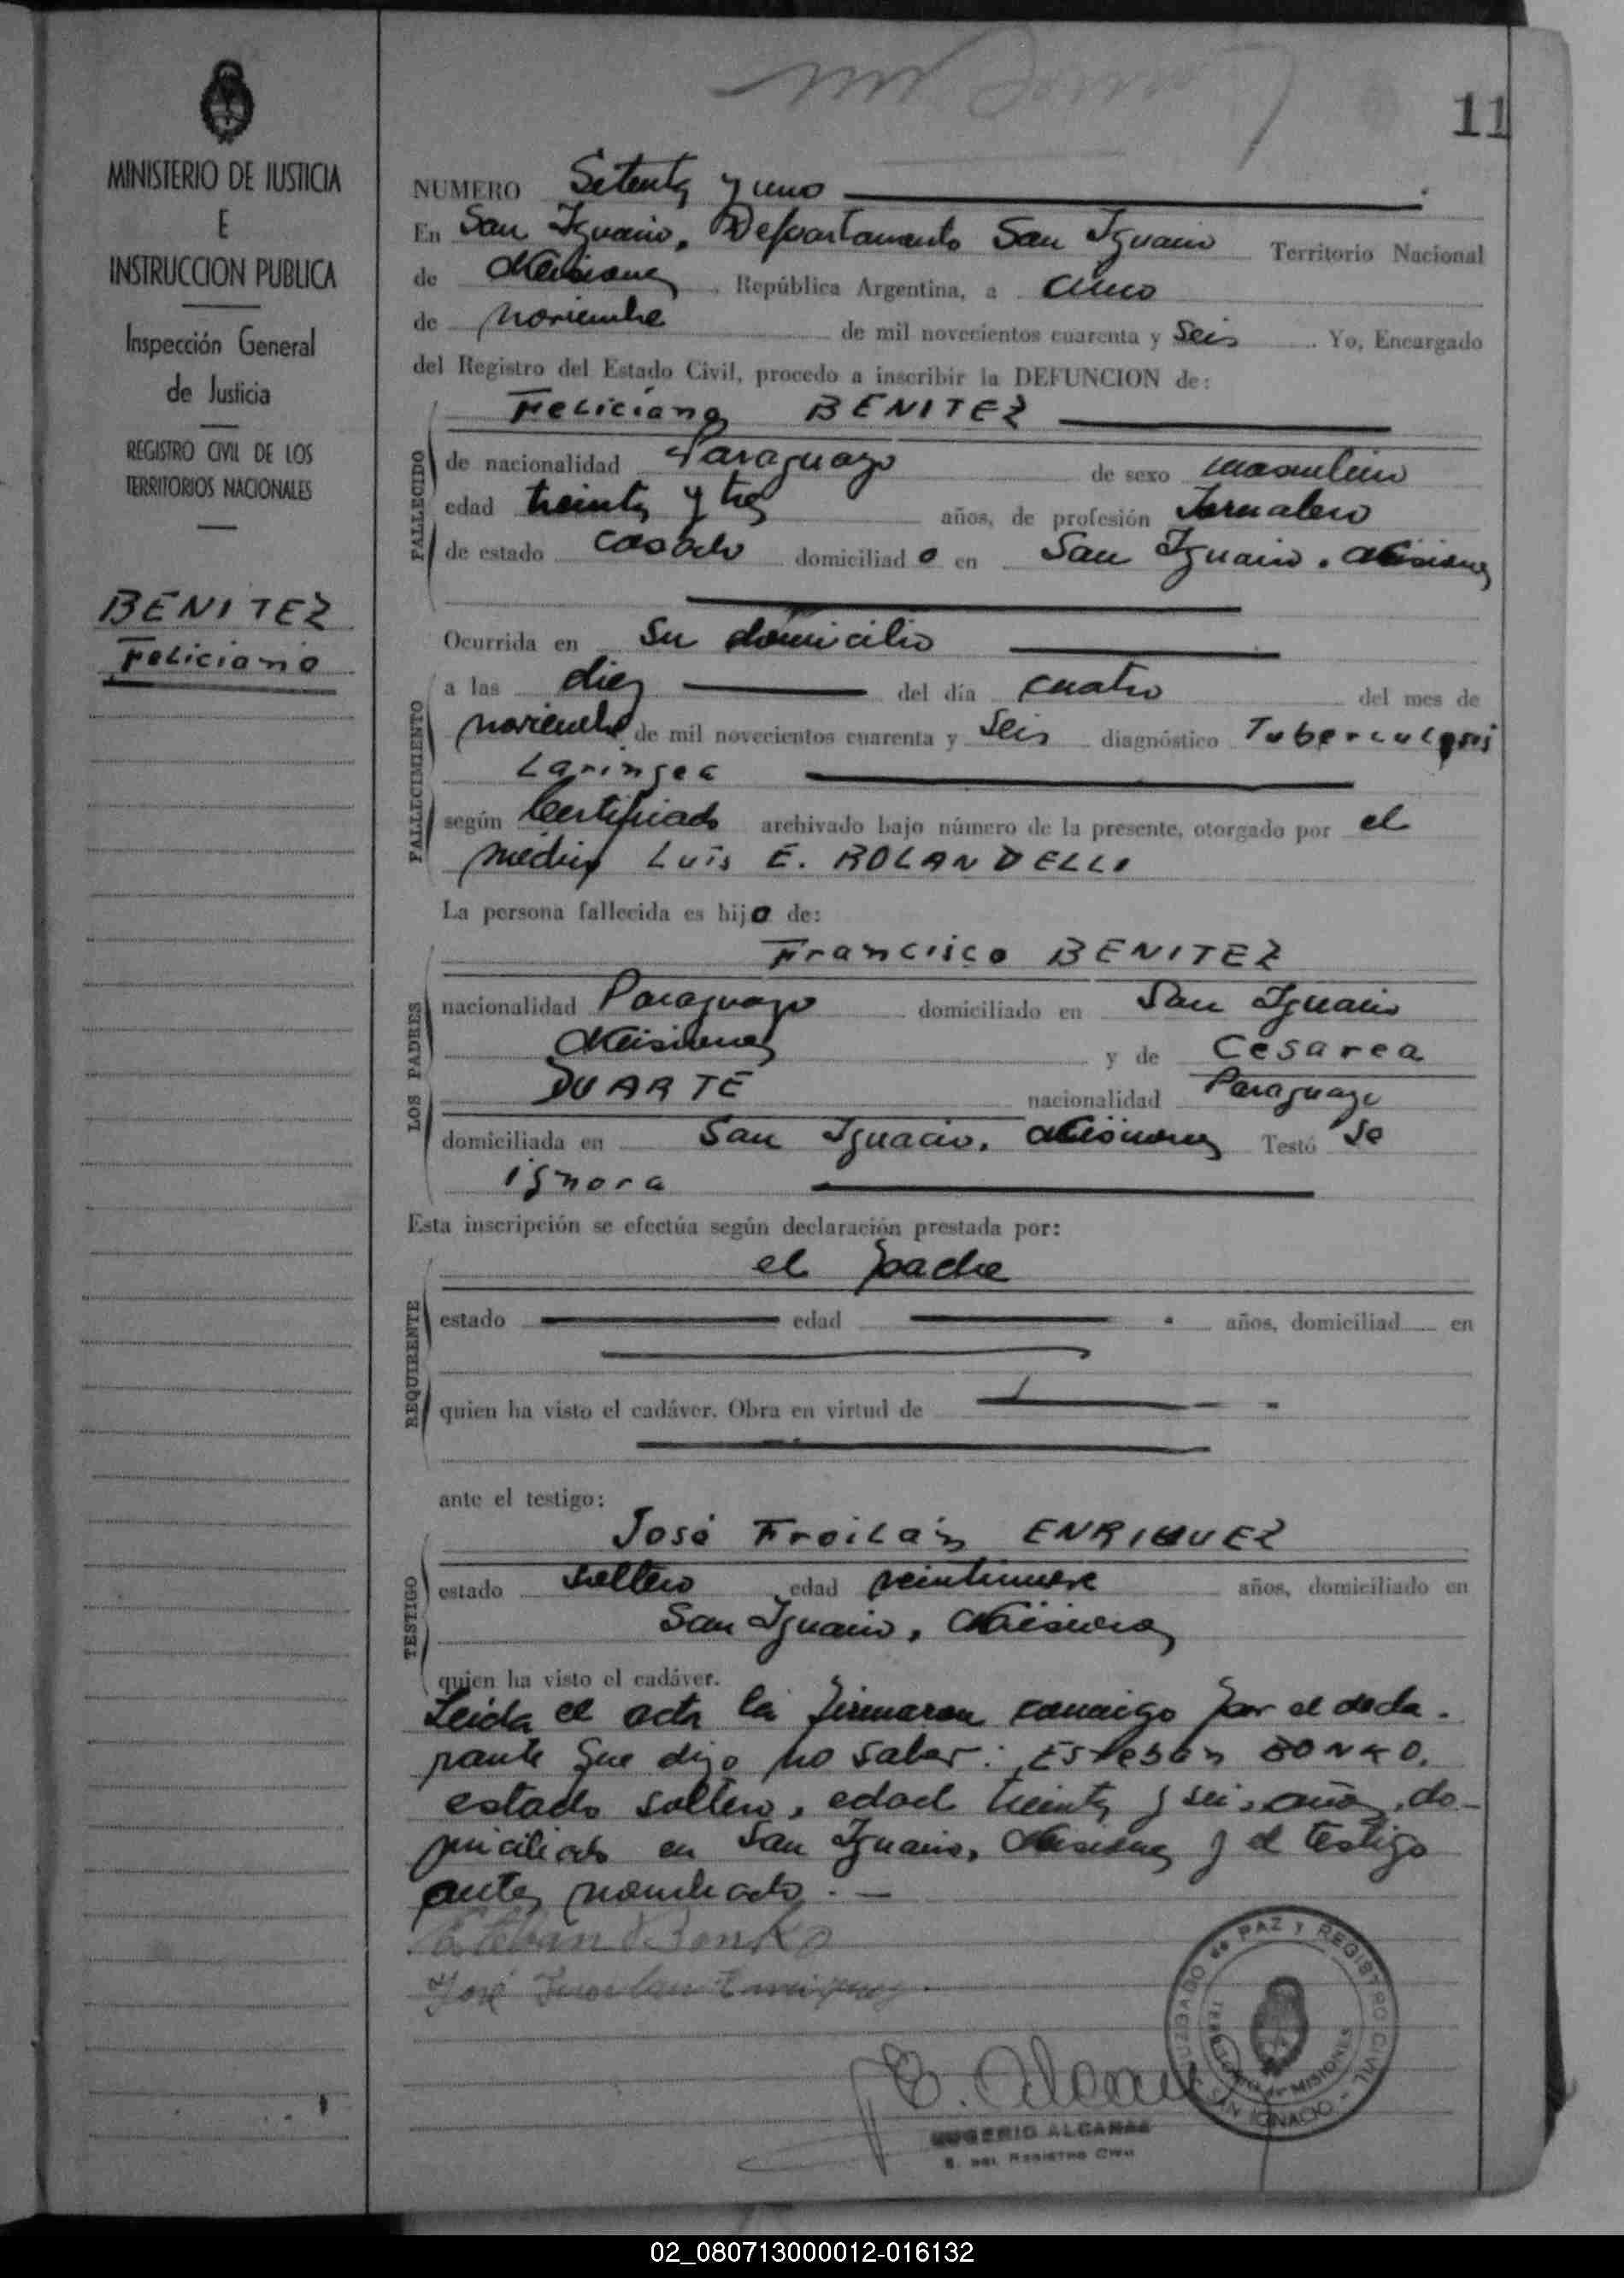 11
MINISTERIO DE JUSTICIA
E
INSTRUCCION PUBLICA
Inspección General
de Justicia
REGISTRO CIVIL DE LOS
TERRITORIOS NACIONALES
BENITEZ
Feliciano
NUMERO Setenta y uno
En San Ignacio, Departamento San Ignacio Territorio Nacional
de Misiones, República Argentina, a cinco
de noviembre de mil novecientos cuarenta y seis. Yo, Encargado
del Registro del Estado Civil, procedo a inscribir la DEFUNCION de:
Feliciano BENITEZ
FALLECIDO
de nacionalidad Paraguayo de sexo masculino
edad treinta y tres años, de profesión Jornalero
de estado casado domiciliado en San Ignacio, Misiones
FALLECIMIENTO
Ocurrida en su domicilio
a las diez del día cuatro del mes de
noviembre de mil novecientos cuarenta y seis diagnóstico Tuberculosis
Laringea
según Certificado archivado bajo número de la presente, otorgado por el
medico Luis E. ROLANDELLI
La persona fallecida es hijo de:
LOS PADRES
Francisco BENITEZ
nacionalidad Paraguayo domiciliado en San Ignacio
Misiones y de Cesarea
DUARTE nacionalidad Paraguaya
domiciliada en San Ignacio, Misiones Testó se
ignora
Esta inscripción se efectúa según declaración prestada por:
REQUIRENTE
el padre
estado edad años, domiciliad en
quien ha visto el cadáver. Obra en virtud de
ante el testigo:
TESTIGO
José Froilán ENRIQUEZ
estado soltero edad veintinueve años, domiciliado en
San Ignacio, Misiones
quien ha visto el cadáver.
Leida el acta la firmaron conmigo por el decla-
rante que dijo no saber: Esteban BONKO,
estado soltero, edad treinta y seis años, do-
miciliado en San Ignacio, Misiones y el testigo
antes nombrado. —
Esteban Bonko
José Froilan Enriquez
E. Alcaraz
EUGENIO ALCARAZ
E. DEL REGISTRO CIVIL
JUZGADO DE PAZ Y REGISTRO CIVIL - SAN IGNACIO -
TERRITORIO DE MISIONES
02_080713000012-016132